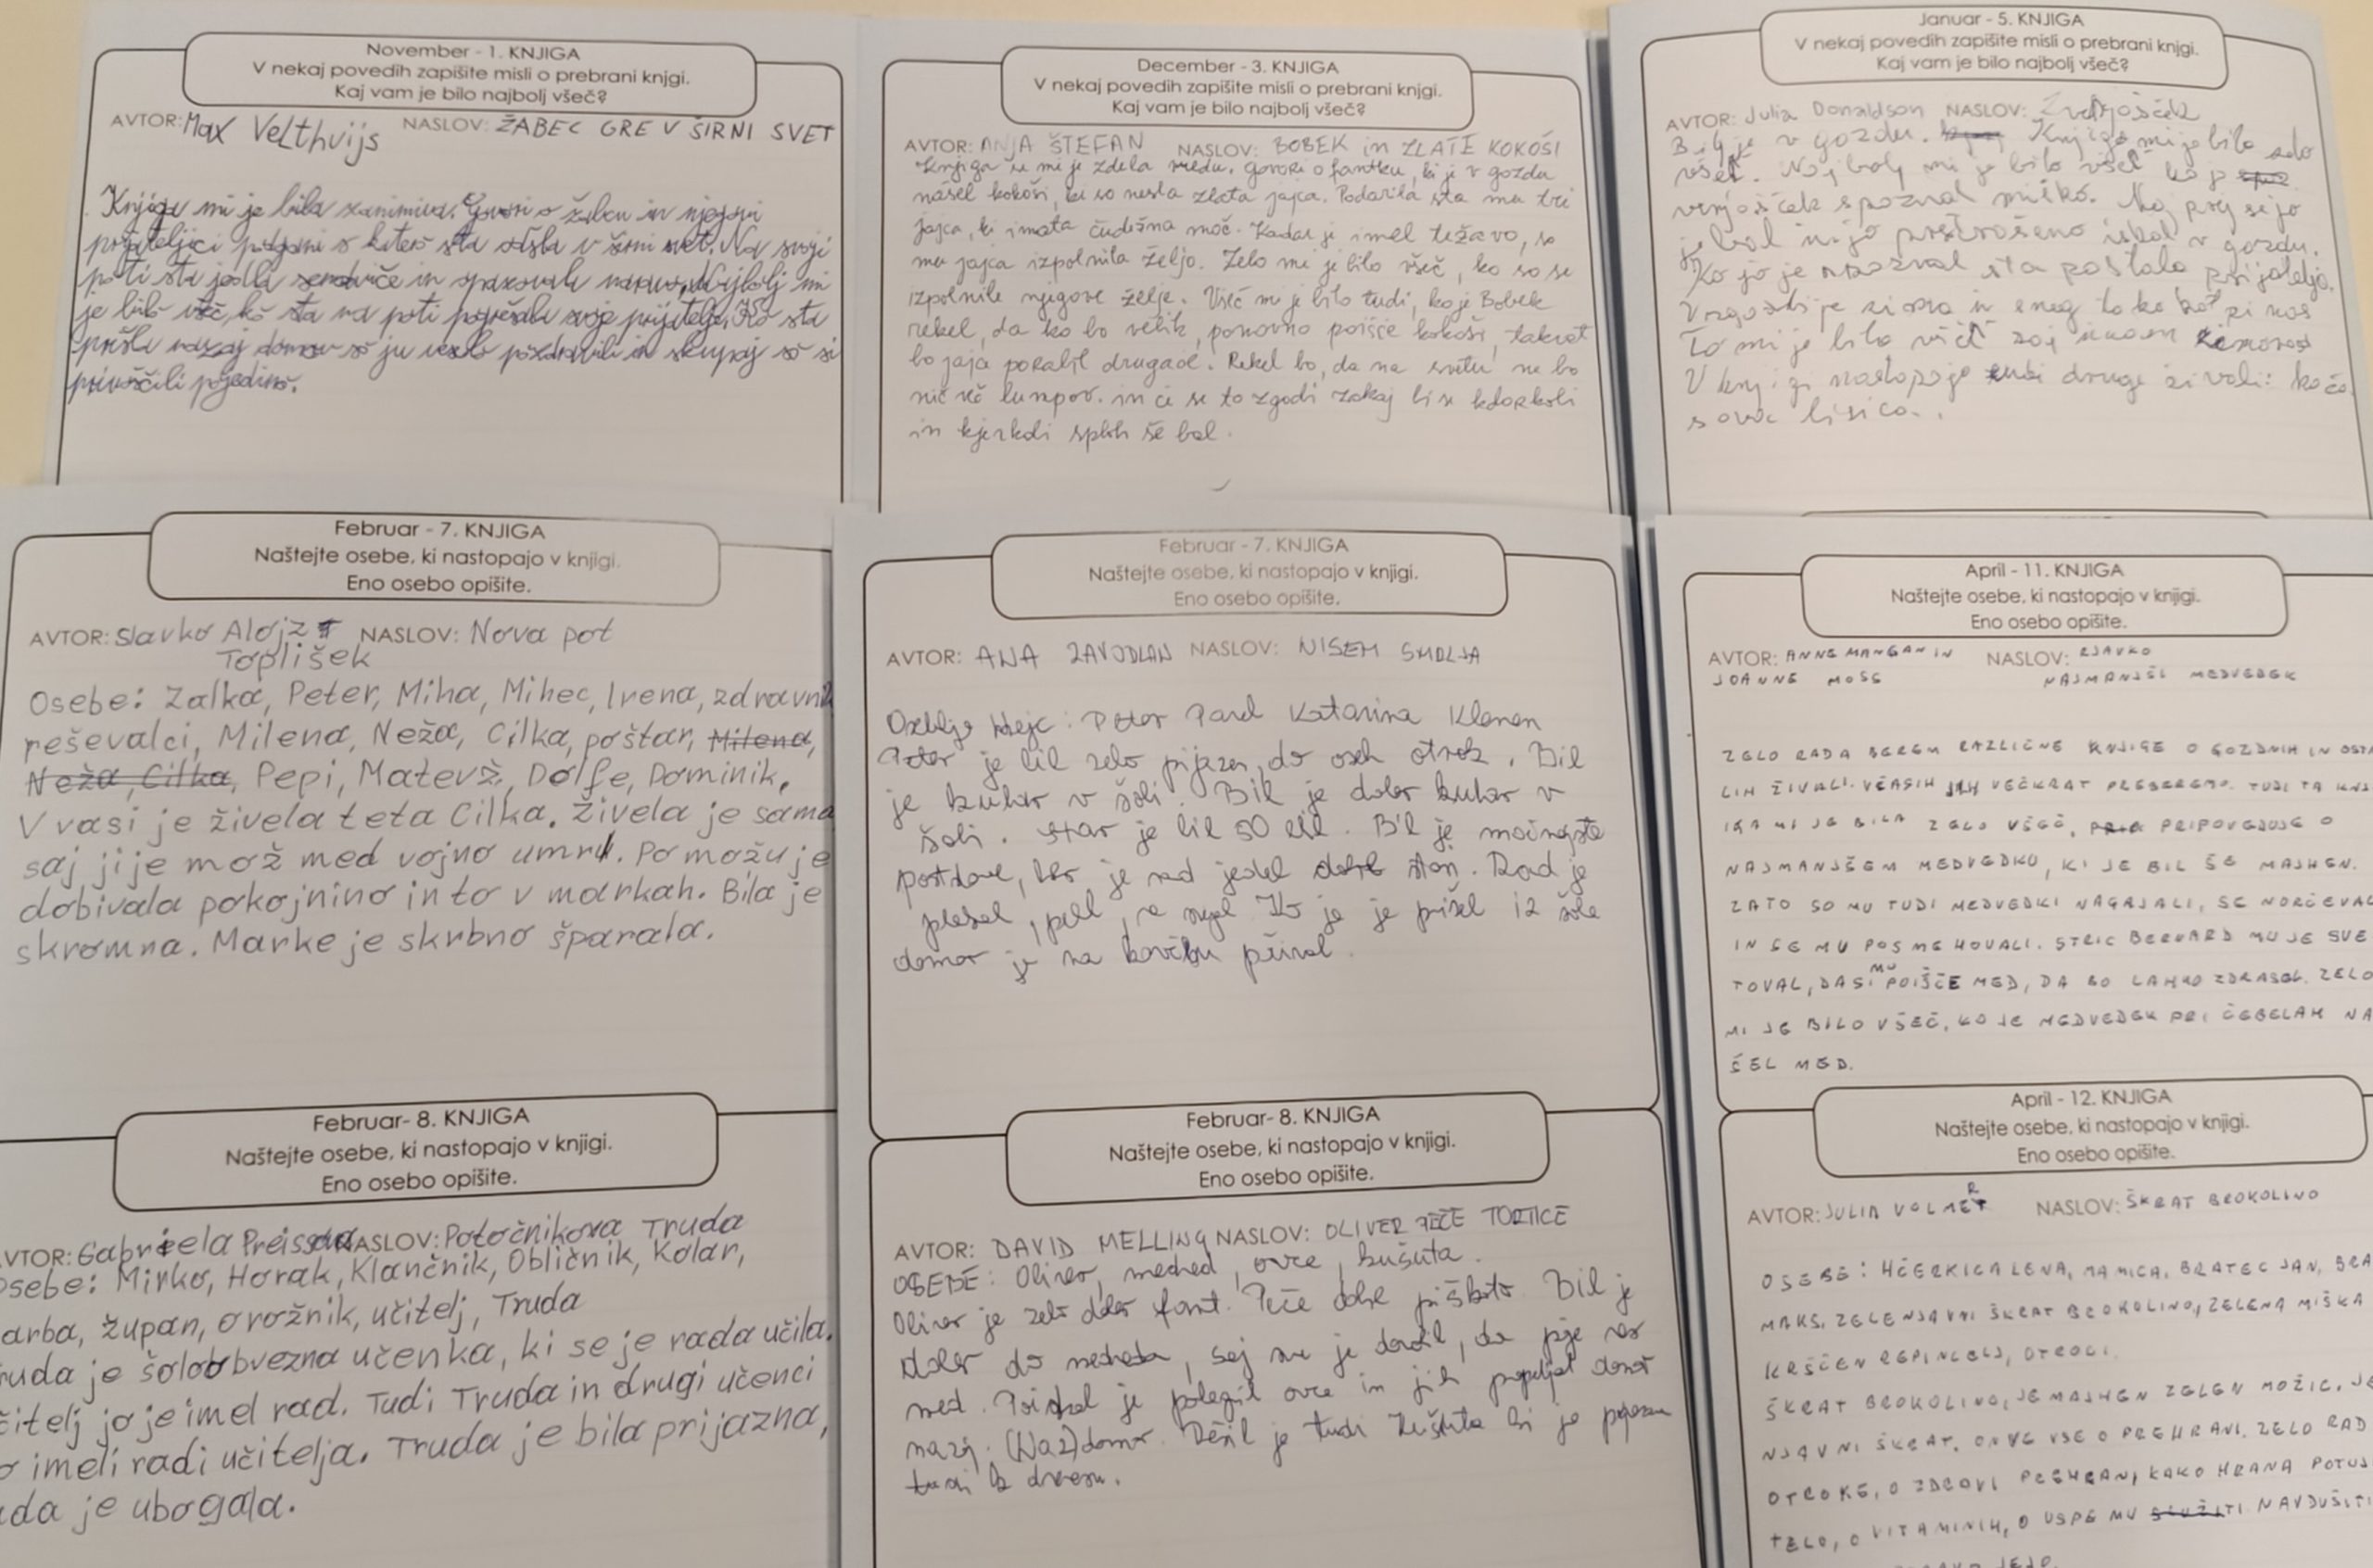 November - 1. KNJIGA
V nekaj povedih zapišite misli o prebrani knjgi.
Kaj vam je bilo najbolj všeč?
AVTOR: Max Velthvijs NASLOV: ŽABEC GRE V ŠIRNI SVET
Knjiga mi je bila zanimiva. Govori o žabcu in njegovi
prijateljici podgani s katero sta odšla v širni svet. Na svoji
poti sta jedla sendviče in opazovala naravo. Najbolj mi
je bilo všeč, ko sta na poti pogrešala svoje prijatelje. Ko sta
prišla nazaj domov so ju veselo pozdravili in skupaj so si
privoščili pojedino.
December - 3. KNJIGA
V nekaj povedih zapišite misli o prebrani knjgi.
Kaj vam je bilo najbolj všeč?
AVTOR: ANJA ŠTEFAN NASLOV: BOBEK in ZLATE KOKOŠI
Knjiga se mi je zdela vredu. Govori o fantku, ki je v gozdu
našel kokoši, ki so nesla zlata jajca. Podarila sta mu tri
jajca, ki imata čudežna moč. Kadar je imel težavo, so
mu jajca izpolnila željo. Zelo mi je bilo všeč, ko so se
izpolnile njegove želje. Všeč mi je bilo tudi, ko je Bobek
rekel, da ko bo velik, ponovno poišče kokoši, takrat
bo jajca porabil drugače. Rekel bo, da na svetu ne bo
nič več lumpov. in če se to zgodi zakaj bi se kdorkoli
in kjerkoli sploh še bal.
Januar - 5. KNJIGA
V nekaj povedih zapišite misli o prebrani knjgi.
Kaj vam je bilo najbolj všeč?
AVTOR: Julia Donaldson NASLOV: Zverjošček
Bil je v gozdu. Knjiga mi je bila zelo
všeč. Najbolj mi je bilo všeč ko je
verjošček spoznal miško. Naj prej se jo
je bal in jo prestrašeno iskal v gozdu.
Ko jo je spoznal sta postala prijatelja.
V zgodbi je zima in sneg tako kot pri nas
To mi je bilo všeč saj imam zimo rad
V knjigi nastopajo tudi druge živali: kača
sova lisica..
Februar - 7. KNJIGA
Naštejte osebe, ki nastopajo v knjigi.
Eno osebo opišite.
AVTOR: Slavko Alojz NASLOV: Nova pot
Toplišek
Osebe: Zalka, Peter, Miha, Mihec, Irena, zdravnik
reševalci, Milena, Neža, Cilka, poštar, Milena,
Neža, Cilka, Pepi, Matevž, Dolfe, Dominik.
V vasi je živela teta Cilka. Živela je sama
saj ji je mož med vojno umrl. Po možu je
dobivala pokojnino in to v markah. Bila je
skromna. Marke je skrbno šparala.
Februar - 7. KNJIGA
Naštejte osebe, ki nastopajo v knjigi.
Eno osebo opišite.
AVTOR: ANA ZAVODLAN NASLOV: NISEM SMOLJA
Peter Pavel Katarina Klemen
Peter je bil zelo prijazen do vseh otrok. Bil
je kuhar v šoli. Bil je dober kuhar v
šoli. Star je bil 50 let. Bil je močnejše
postave, ker je rad jedel dobre stvari. Rad je
plesal, pell, se smejal. Ko je je prišel iz šole
domov je na kavču
April - 11. KNJIGA
Naštejte osebe, ki nastopajo v knjigi.
Eno osebo opišite.
AVTOR: ANNE MANGAN IN NASLOV: RJAVKO
JOANNE MOSS NAJMANJŠI MEDVEDEK
ZELO RADA BEREM RAZLIČNE KNJIGE O GOZDNIH IN OSTA
LIH ŽIVALI. VČASIH JIH VEČKRAT PREBEREMO. TUDI TA KNJ
IGA MI JE BILA ZELO VŠEČ, PRIPOVEDUJE O
NAJMANJŠEM MEDVEDKU, KI JE BIL ŠE MAJHEN.
ZATO SO MU TUDI MEDVEDKI NAGAJALI, SE NORČEVAL
IN SE MU POSMEHOVALI. STRIC BERNARD MU JE SVE
TOVAL, DA SI MU POIŠČE MED, DA BO LAHKO ZDRASEL. ZELO
MI JE BILO VŠEČ, KO JE MEDVEDEK PRI ČEBELAH NA
ŠEL MED.
Februar- 8. KNJIGA
Naštejte osebe, ki nastopajo v knjigi.
Eno osebo opišite.
AVTOR: Gabriela Preissova NASLOV: Potočnikova Truda
osebe: Mirko, Horak, Klančnik, Obličnik, Kolar,
arba, župan, orožnik, učitelj, Truda
ruda je šoloobvezna učenka, ki se je rada učila.
čitelj jo je imel rad. Tudi Truda in drugi učenci
o imeli radi učitelja. Truda je bila prijazna,
da je ubogala.
Februar- 8. KNJIGA
Naštejte osebe, ki nastopajo v knjigi.
Eno osebo opišite.
AVTOR: DAVID MELLING NASLOV: OLIVER PEČE TORTICE
OSEBE: Oliver, medved, ovce, košuta.
Oliver je zelo dober fant. Peče dobre piškote. Bil je
dober do medveda, saj mu je dovolil, da pije ves
med. Poiskal je pobegle ovce in jih popeljal domov
nazaj. (Naz) domov. Rešil je tudi košuto ki je
dresu.
April - 12. KNJIGA
Naštejte osebe, ki nastopajo v knjigi.
Eno osebo opišite.
AVTOR: JULIA VOLMER NASLOV: ŠKRAT BROKOLINO
OSEBE: HČERKICA LENA, MAMICA, BRATEC JAN, BRA
MAKS, ZELENJAVNI ŠKRAT BROKOLINO, ZELENA MIŠKA
KRŠČEN REPINCELJ, OTROCI.
ŠKRAT BROKOLINO, JE MAJHEN ZELEN MOŽIC. JE
NJAVNI ŠKRAT. ON VE VSE O PREHRANI. ZELO RAD
OTROKE, O ZDRAVI PREHRANI, KAKO HRANA POTUJ
TELO, O VITAMINIH, O USPE MU NAVDUŠITI
JEJO.